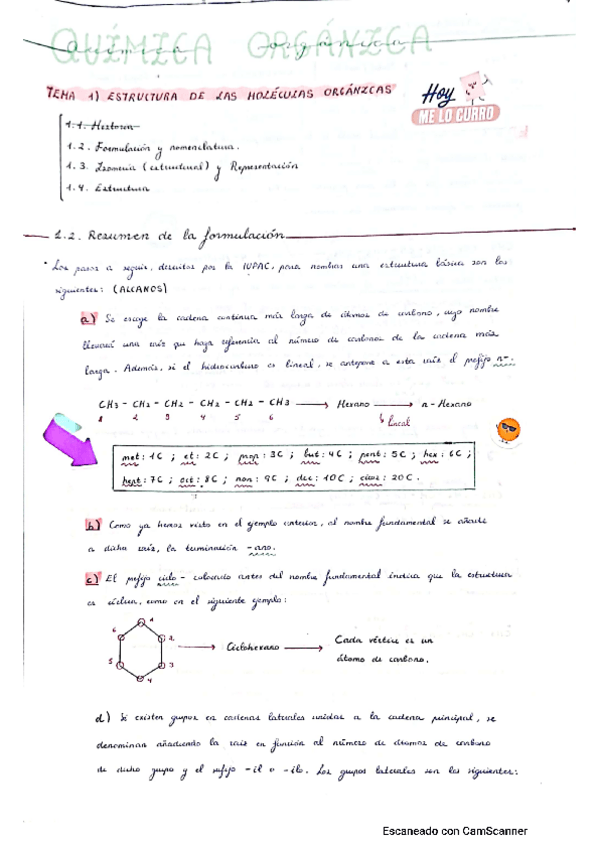 QUÍMICA ORGÁNICA
Química orgánica
TEMA 1) ESTRUCTURA DE LAS MOLÉCULAS ORGÁNICAS
Hoy
ME LO CURRO
1.1. Historia
1.2. Formulación y nomenclatura.
1.3. Isomería (estructural) y Representación
1.4. Estructura
1.2. Resumen de la formulación
· Los pasos a seguir, descritos por la IUPAC, para nombrar una estructura básica son los
siguientes: (ALCANOS)
a) Se escoge la cadena continua más larga de átomos de carbono, cuyo nombre
llevará una raíz que haga referencia al número de carbonos de la cadena más
larga. Además, si el hidrocarburo es lineal, se antepone a esta raíz el prefijo n-.
CH3 - CH2 - CH2 - CH2 - CH2 - CH3 → Hexano → n-Hexano
1 2 3 4 5 6 lineal
met: 1C ; et: 2C ; prop: 3C ; but: 4C ; pent: 5C ; hex: 6C ;
hept: 7C ; oct: 8C ; non: 9C ; dec: 10C ; eicos: 20C.
b) Como ya hemos visto en el ejemplo anterior, al nombre fundamental se añade
a dicha raíz, la terminación -ano.
c) El prefijo ciclo- colocado antes del nombre fundamental indica que la estructura
es cíclica, como en el siguiente ejemplo:
1
6 2
→ Ciclohexano → Cada vértice es un
átomo de carbono.
5 3
4
d) Si existen grupos en cadenas laterales unidas a la cadena principal, se
denominan añadiendo la raíz en función al número de átomos de carbono
de dicho grupo y el sufijo -il o -ilo. Los grupos laterales son los siguientes:
Escaneado con CamScanner